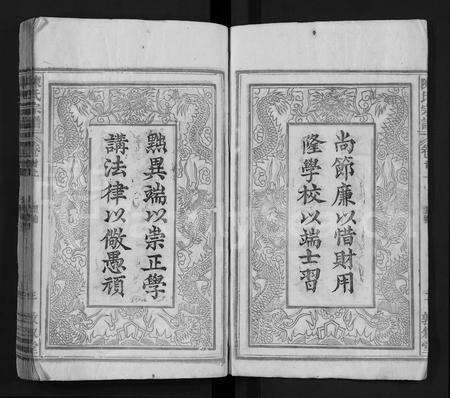 尚節廉以惜財用
隆學校以端士習
黜異端以崇正學
講法律以儆愚頑
陳氏宗譜